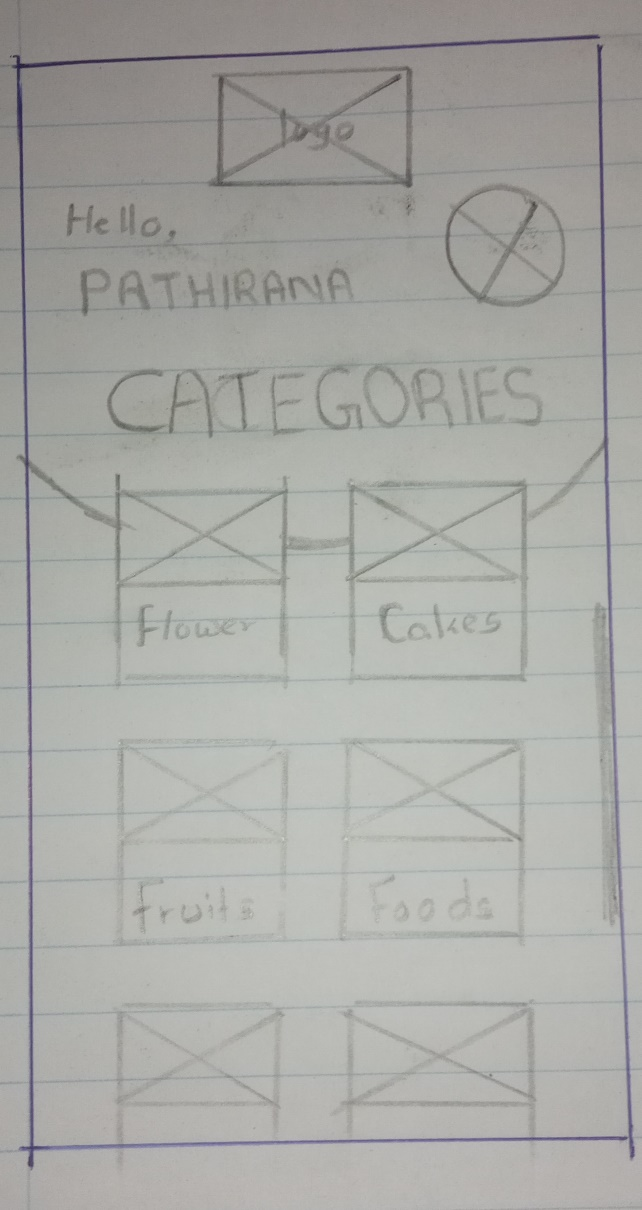 logo
Hello,
PATHIRANA
CATEGORIES
Flower Cakes
Fruits Foods